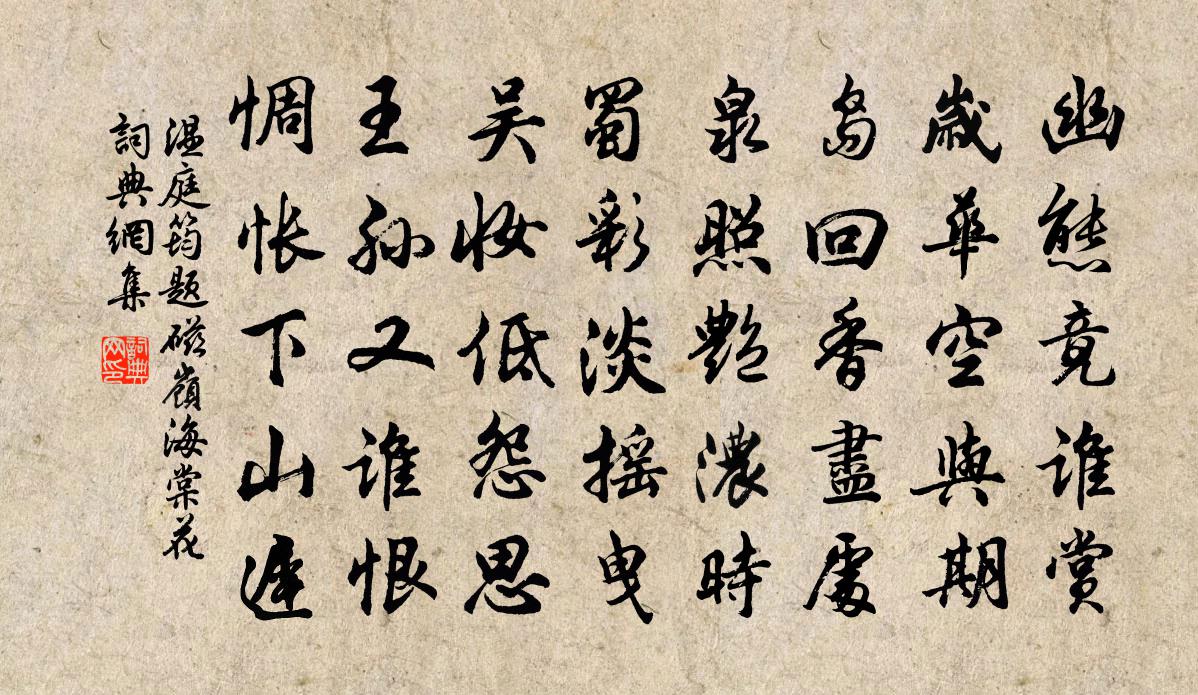 幽態竟誰賞
歲華空與期
島回香盡處
泉照艷濃時
蜀彩淡搖曳
吴妝低怨思
王孫又誰恨
惆悵下山遲
温庭筠題磁嶺海棠花
詞典網集
詞典网印